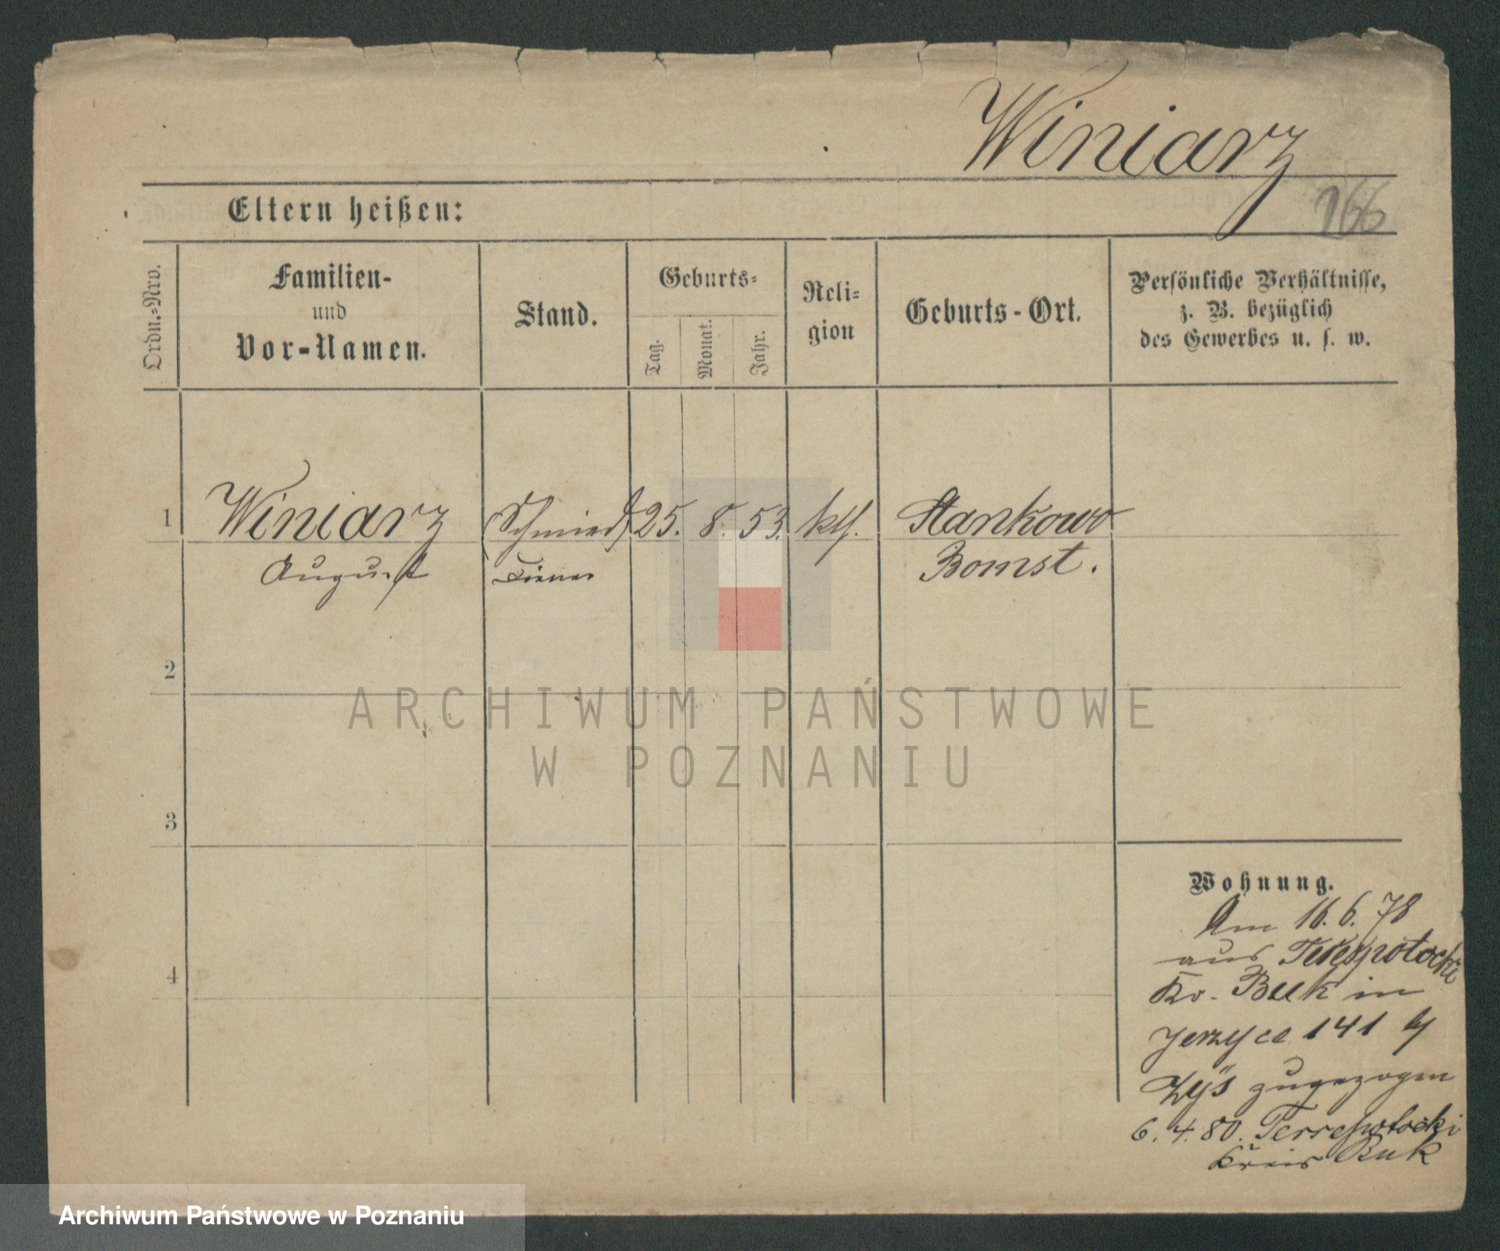 Winiarz
166
Eltern heißen:
Ordn.-Nro.
Familien-
und
Vor-Namen.
Stand.
Geburts-
Tag.
Monat.
Jahr.
Reli-
gion
Geburts-Ort.
Persönliche Verhältnisse,
z. B. bezüglich
des Gewerbes u. s. w.
1
Winiarz
August
(Schmied)
Diener
25. 8. 53.
kth.
Stankowo
Bomst.
2
ARCHIWUM PAŃSTWOWE
W POZNANIU
3
4
Wohnung.
Am 16. 6. 78
aus
Kr. Buk in
Jerzyce 141
zugezogen
6. 4. 80. Terrespotocki
Kreis Buk
Archiwum Państwowe w Poznaniu